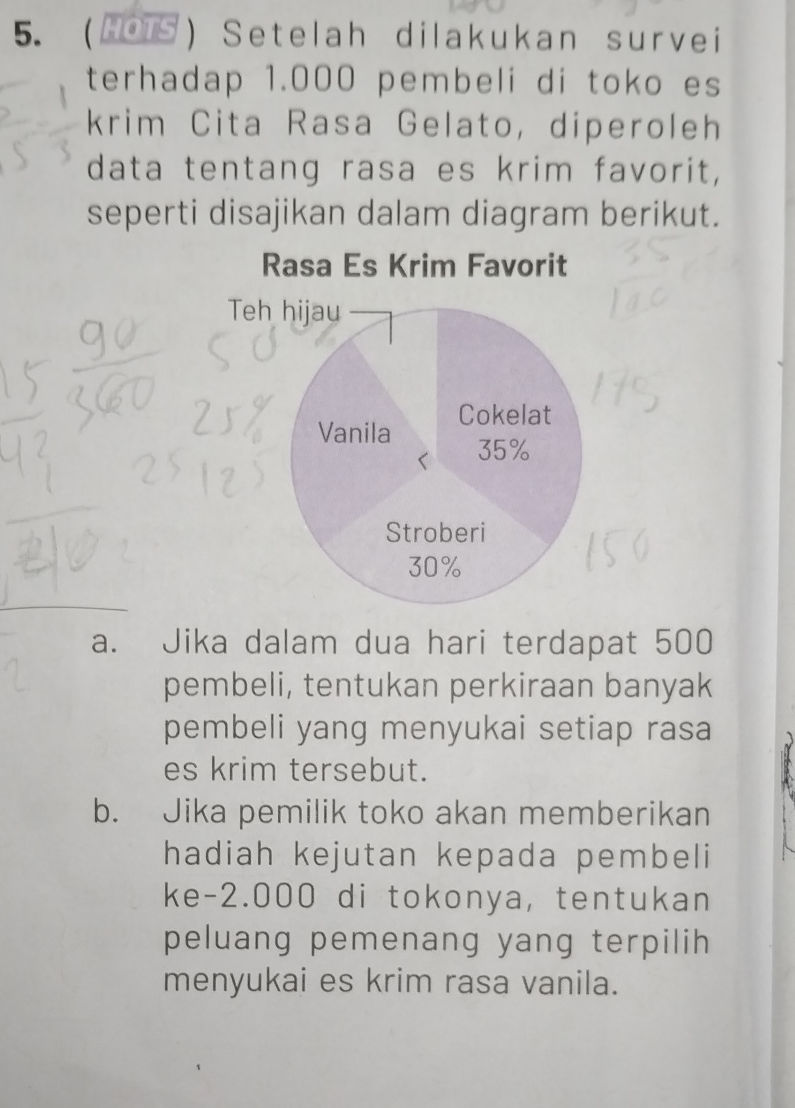 5. (HOTS) Setelah dilakukan survei
terhadap 1.000 pembeli di toko es
krim Cita Rasa Gelato, diperoleh
data tentang rasa es krim favorit,
seperti disajikan dalam diagram berikut.
Rasa Es Krim Favorit
35
100
Teh hijau
90
360
50%
175
Cokelat
35%
Vanila
25%
25 125
Stroberi
30%
150
a. Jika dalam dua hari terdapat 500
pembeli, tentukan perkiraan banyak
pembeli yang menyukai setiap rasa
es krim tersebut.
b. Jika pemilik toko akan memberikan
hadiah kejutan kepada pembeli
ke-2.000 di tokonya, tentukan
peluang pemenang yang terpilih
menyukai es krim rasa vanila.